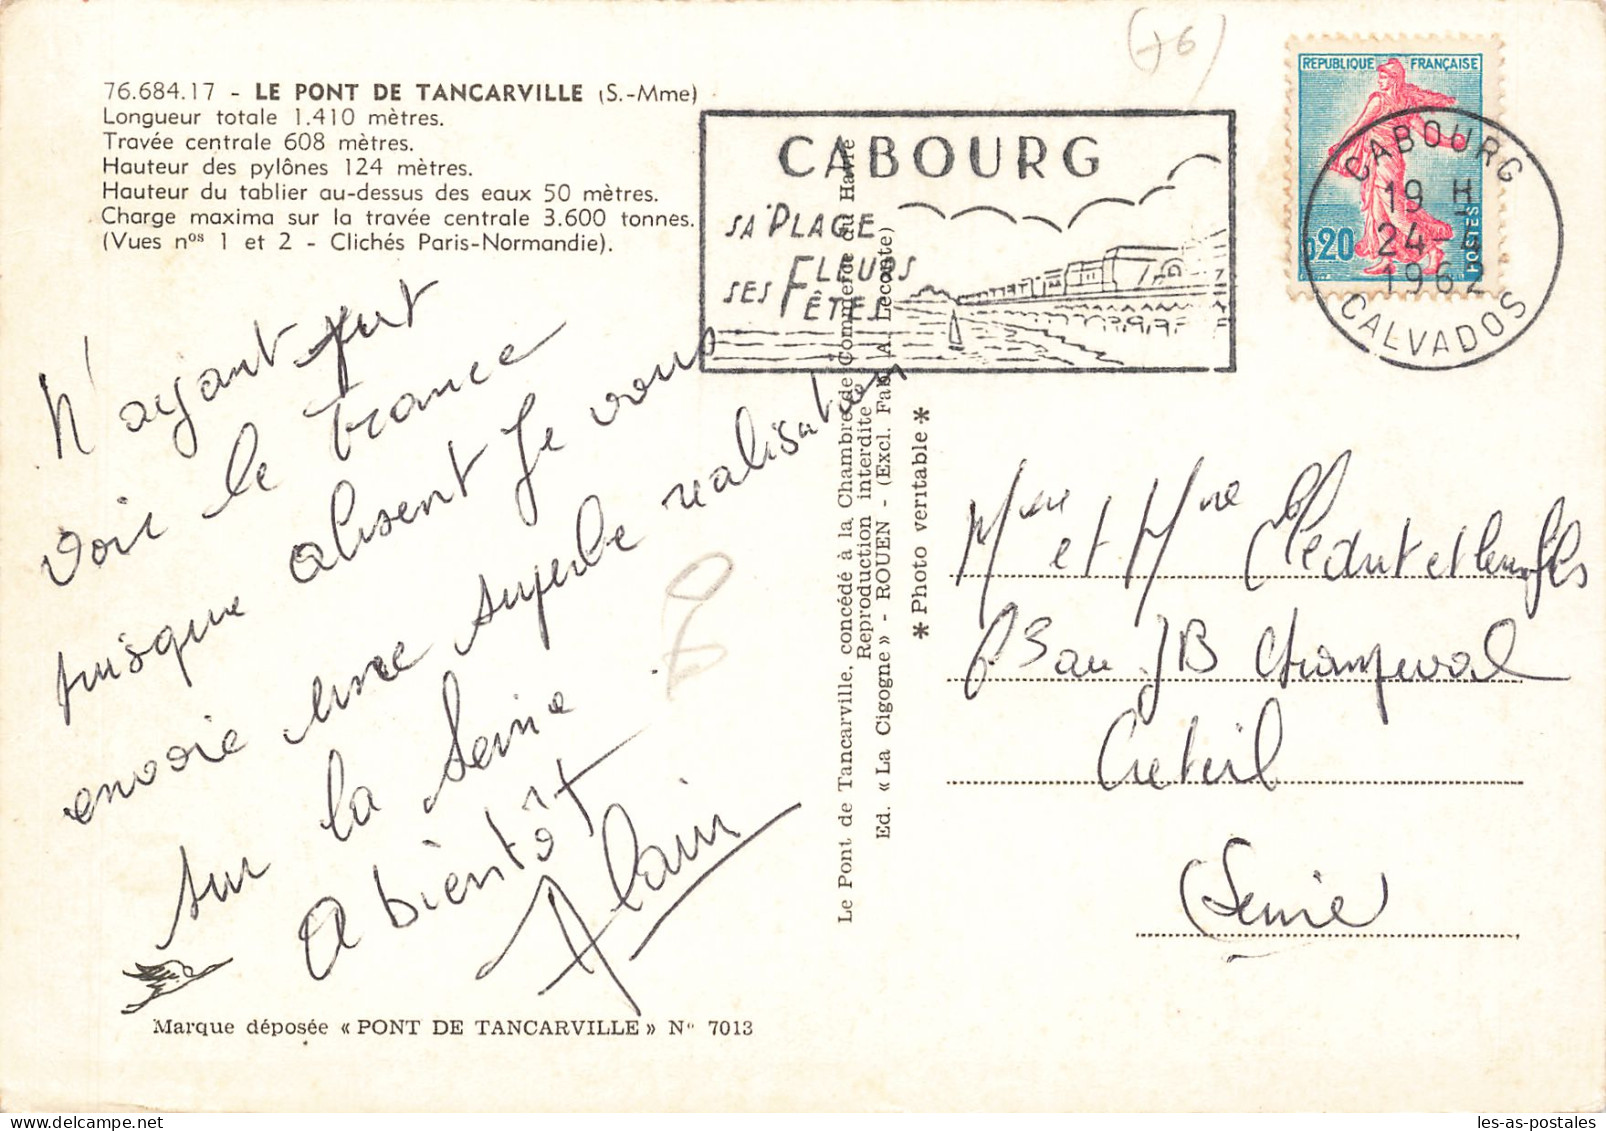 (76)
76.684.17 - LE PONT DE TANCARVILLE (S.-Mme)
Longueur totale 1.410 mètres.
Travée centrale 608 mètres.
Hauteur des pylônes 124 mètres.
Hauteur du tablier au-dessus des eaux 50 mètres.
Charge maxima sur la travée centrale 3.600 tonnes.
(Vues nos 1 et 2 - Clichés Paris-Normandie).
N'ayant put
voir le France
puisque absent Je vous
envoie une superbe realisation
sur la Seine
A bientôt
Alain
Marque déposée « PONT DE TANCARVILLE » N° 7013
Le Pont de Tancarville, concédé à la Chambre de Commerce du Havre
Reproduction interdite
Ed. « La Cigogne » - ROUEN - (Excl. Fab. A. Leconte)
* Photo véritable *
CABOURG
SA PLAGE
SES FLEURS
FÊTES
REPUBLIQUE FRANÇAISE
0,20
POSTES
CABOURG
19 H
24-4
1962
CALVADOS
et Mme
JB Champeval
Creteil
(Seine)
les-as-postales